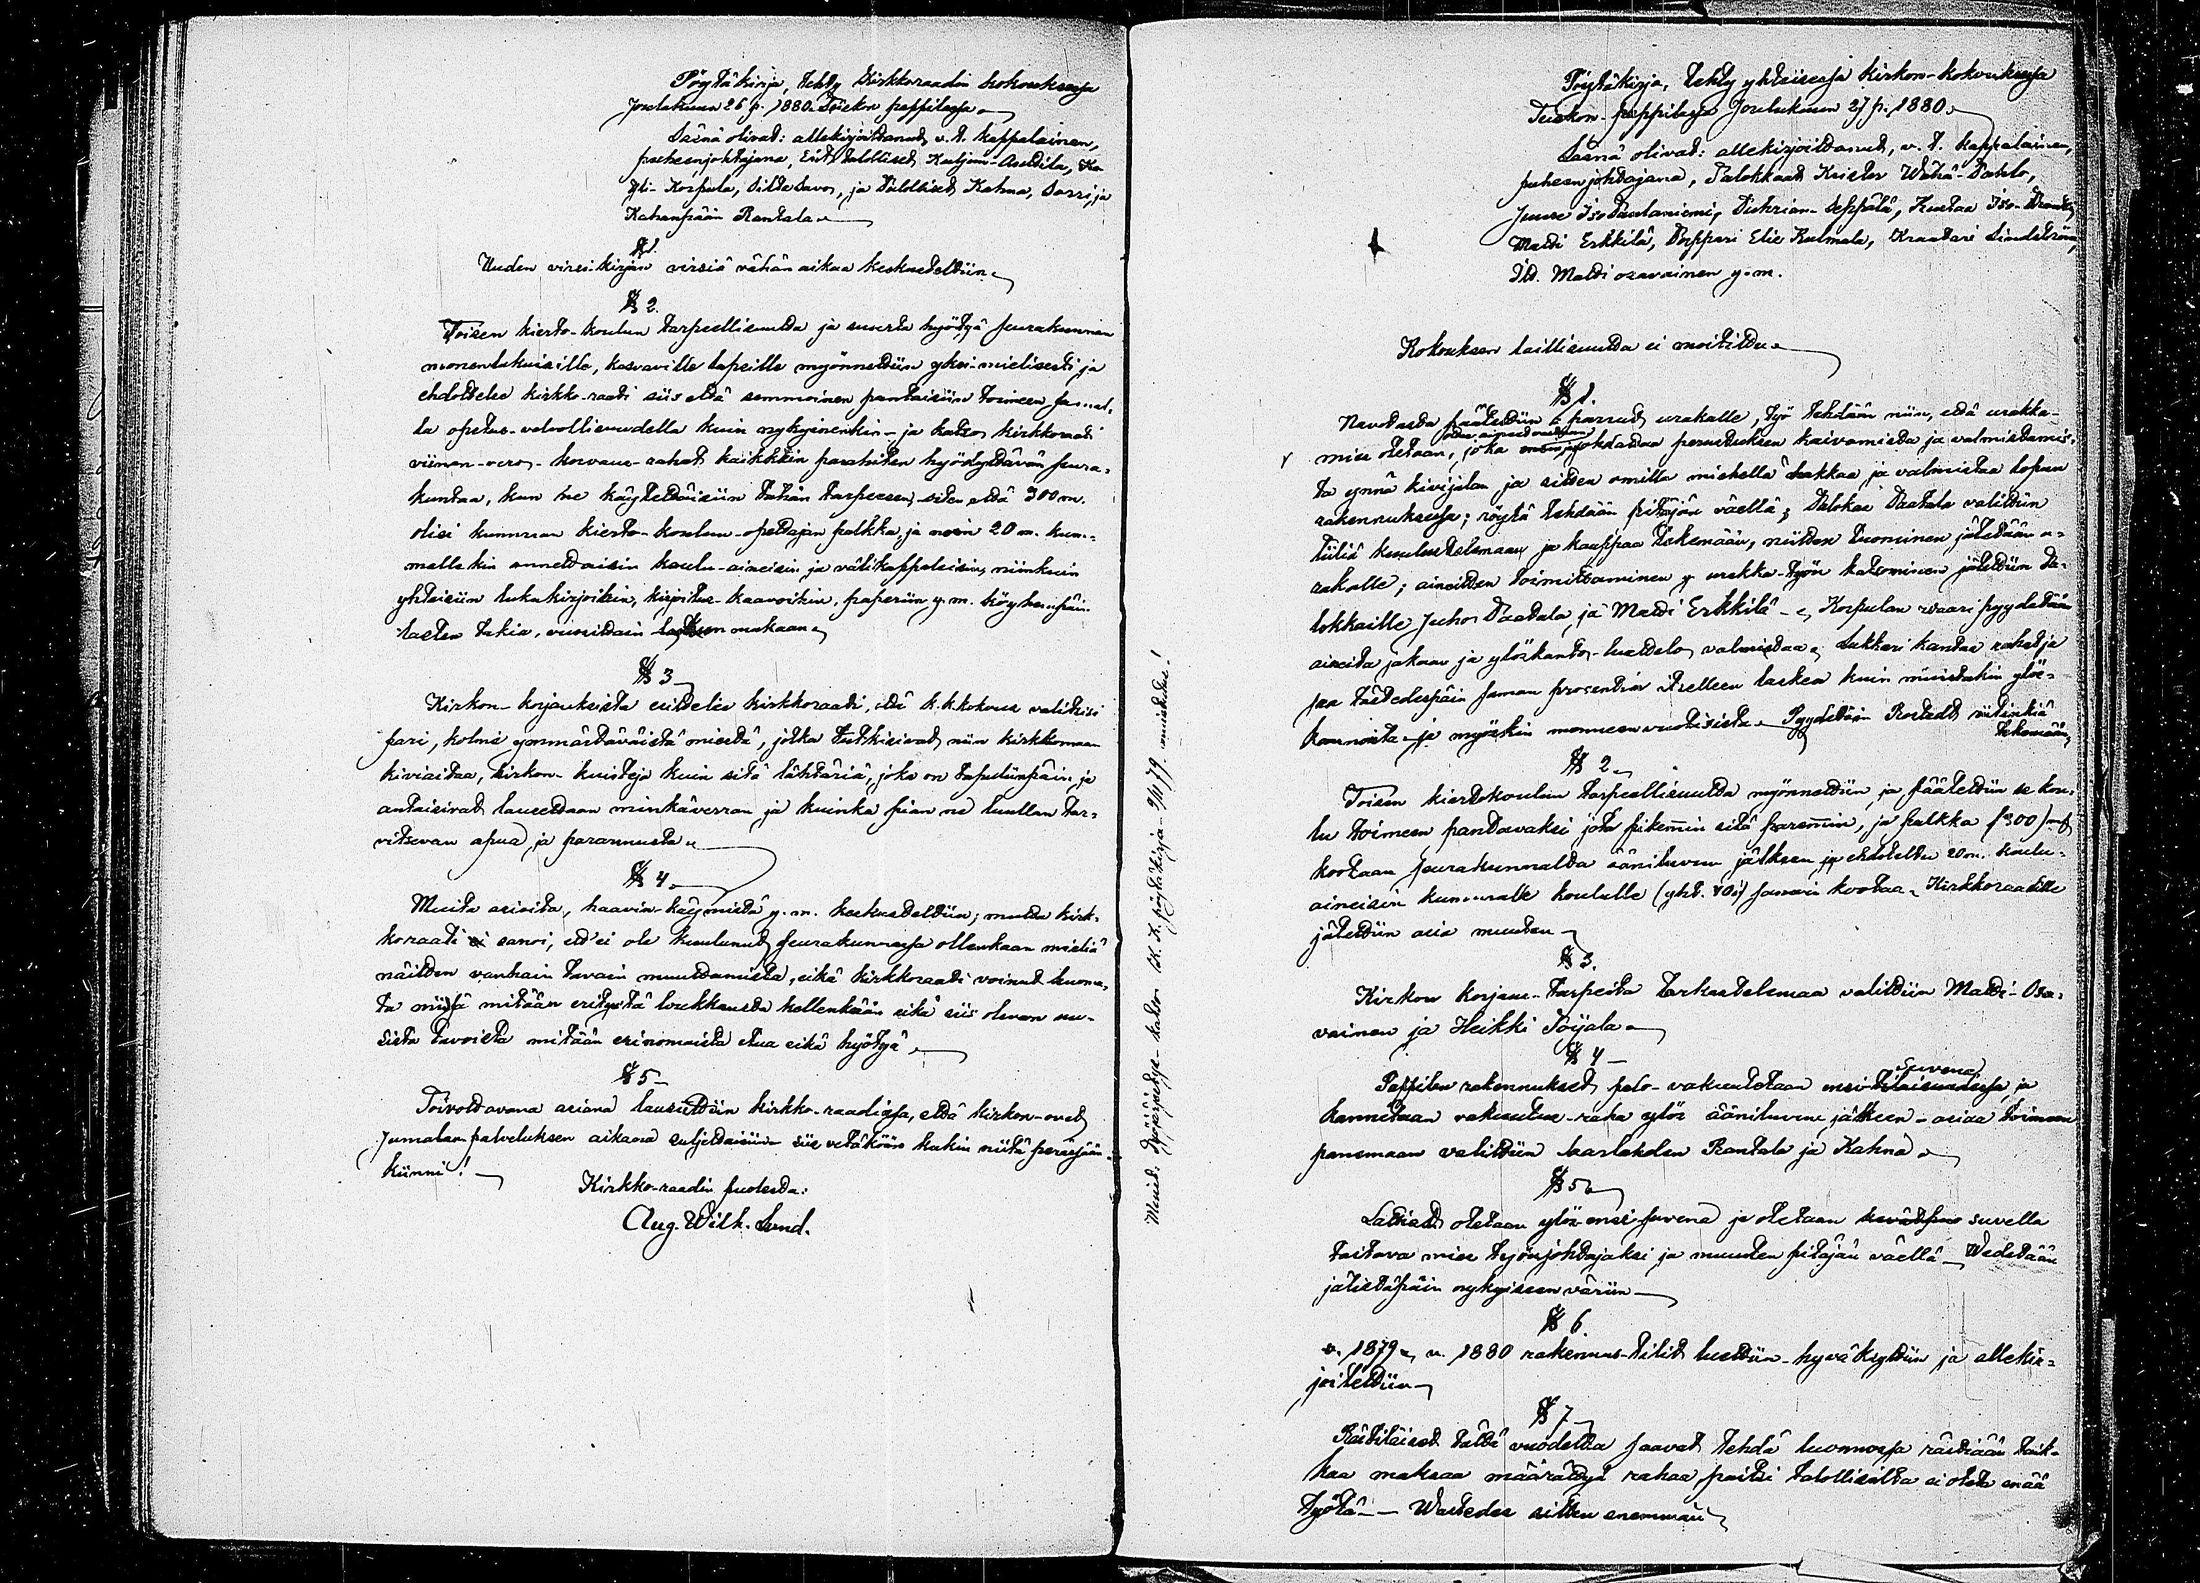 Pöytäkirja, tehty Kirkkoraadin kokouksessa
Joulukuun 26 p. 1880 Teiskon pappilassa
Läsnä olivat: allekirjoittanut v. t. kappalainen,
puheenjohtajana, Erit. talolliset Kuljun-Anttila,
Yli-Korpula, Silta Savo, ja Talolliset Kahna, Sarri, ja
Kahanpään Rantala
§ 1.
Uuden virsikirjan virsiä vähän aikaa keskusteltiin
§ 2.
Toisen kierto-koulun tarpeellisuutta ja suurta hyötyä seurakunnan
monenlukuisille, kasvaville lapsille myönnettiin yksi-mielisesti, ja
ehdottelee kirkko-raati siis että semmoinen pantaisiin toimeen samal-
la opetus-velvollisuudella kuin nykyinenkin - ja katsoo kirkkoraati
viinan-vero-korvaus-rahat kaikkein parahiten hyödyttävän seura-
kuntaa, kun ne käytettäisiin tähän tarpeesen, siten että 300 m.
olisi kumman kierto-koulun-opettajan palkka, ja noin 20 m. kum-
mallekin annettaisiin koulu-aineisin ja välikappaleisin, niinkuin
yhteisiin lukukirjoihin, kirjoitus-kaavoihin, paperiin y. m. köyhempäin
lasten takia, vuosittain mukaan
§ 3
Kirkon-korjauksista esittelee kirkkoraati, että k. k. kokous valitsisi
pari, kolme ymmärtäväistä miestä, jotka tutkisivat niin kirkkomaan
kiviaitaa, kirkon-kuisteja kuin sitä lähtäriä, joka on tapuliinpäin, ja
antaisivat lauseltaan minkäverran ja kuinka pian ne luullan tar-
vitsevan apua, ja parannusta
§ 4
Muita asioita, haavin-käymistä y. m. keskusteltiin; mutta kirk-
koraati sanoi, ett'ei ole kuulunut seurakunnassa ollenkaan mieliä
näitten vanhain tavain muuttamista, eikä kirkkoraati voinut huoma-
ta niissä mitään erityistä loukkausta kellenkään eikä siis olevan uu-
sista tavoista mitään erinomaista etua eikä hyötyä
§ 5
Toivottavana asiana lausuttiin kirkko-raadissa, että kirkon-ovet
Jumalan-palveluksen aikana suljettaisiin siis vetäköön kukin niitä peräsään-
kiinni!
Kirkko-raadin puolesta:
Aug. Wilh. Lund.
Muist. K. K. pöytäkirja 2/11 79. muistutus!
Pöytäkirja, tehty yhteisessä kirkon-kokouksessa
Teiskon-pappilassa Joulukuun 27 p. 1880
Läsnä olivat: allekirjoittanut, v. t. kappalainen,
puheenjohtajana, Talokkaat Kristor Wähä-Pohto,
Juuse Iso Paulaniemi, Tiehrian-Seppälä, Kustaa Iso-
Matti Erkkilä, Torppari Elie Kulmala, Kraatari Lindström,
Itl. Matti osavainen y. m.
Kokouksen laillisuutta ei moitittu
§ 1.
Navetasta päätettiin parrut urakalle, työ tehdään niin, että urakka-
mies otetaan, joka johdattaa perustuksen kaivamista ja valmistamis-
ta ynnä kivijalan ja sitten omilla miehillä hakkaa ja valmistaa lopun
rakennuksessa; röytä tehdään pitäjän väellä; Talokas Paatala valittiin
tiiliä kuulustelemaan ja kauppaa tekemään, niitten tuominen jätetään u-
rakalle; ainetten toimitsaminen y. urakka-työn katsominen jätettiin ta-
lokkaille Juho Paatala, ja Matti Erkkilä. Korpulan vaari pyydetään
aineita jakaa ja ylöskanto-luettelo valmistaa. Lukkari kantaa rahat ja
saa tästedespäin saman prosentin itselleen laskea kuin muistakin ylös-
kannoista ja myöskin monneenvuotisista. Pyydetään Rostedt niitinkiä
tekemään
§ 2
Toisen kiertokoulun tarpeellisuutta myönnettiin, ja päätettiin se kou-
lu toimeen pantavaksi jota pikemmin sitä paremmin, ja palkka (300) m
kootaan seurakunnalta ääniluvun jälkeen, ja ehdoteltu 20 m. koulu-
aineisin kummalle koululle (yht. 40) samoin kootaan. Kirkkoraadille
jätettiin asia muuten
§ 3.
Kirkon korjaus-tarpeita tarkastelemaan valittiin Matti-Osa-
vainen ja Heikki Toijala
§ 4
Suvena
Pappilan rakennukset palo-vakuutetaan ensi-tilaisuudessa, ja
kannetaan vakuutus-raha ylös ääniluvun jälkeen - asiaa toimeen
panemaan valittiin Rantala ja Kahna
§ 5
Lattiat otetaan ylös ensi suvena ja otetaan suvella
taitava mies työnjohtajaksi ja muuten pitäjän väellä. Wedetään
jälistäpäin nykyiseen väriin
§ 6.
v. 1879 v. 1880 rakennus-tilit luettiin-hyväksyttiin ja allekir-
joitettiin
§ 7
Rästiläiset tältä vuodelta saavat tehdä luonnossa rästiään taik-
ka maksaa määrättyä rahaa, paitsi talollisilta ei oteta enää
työtä - Wastedes sitten enemmän